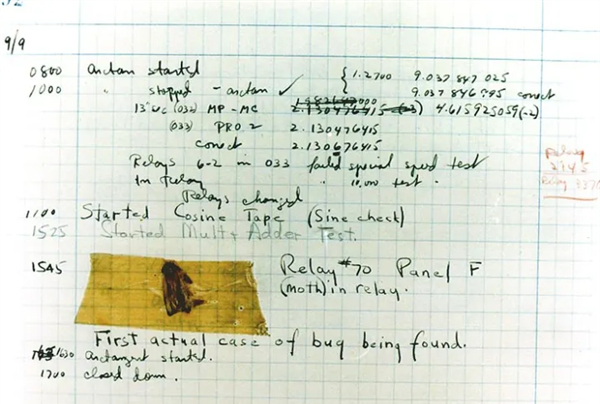 9/9
0800 arctan started { 1.2700 9.037 847 025
1000 " stopped - arctan ✓ 9.037 846 995 conect
13"uc (032) MP-MC 2.130476415 (-3) 4.615925059(-2)
(033) PRO 2 2.130476415
conect 2.130676415
Relays 6-2 in 033 failed special speed test
In Relay " 10,000 test.
Relay
3145
Relay 3370
Relays changed
1100 Started Cosine Tape (Sine check)
1525 Started Mult+Adder Test.
1545 Relay #70 Panel F
(moth) in relay.
First actual case of bug being found.
1630 arctangent started.
1700 closed down.